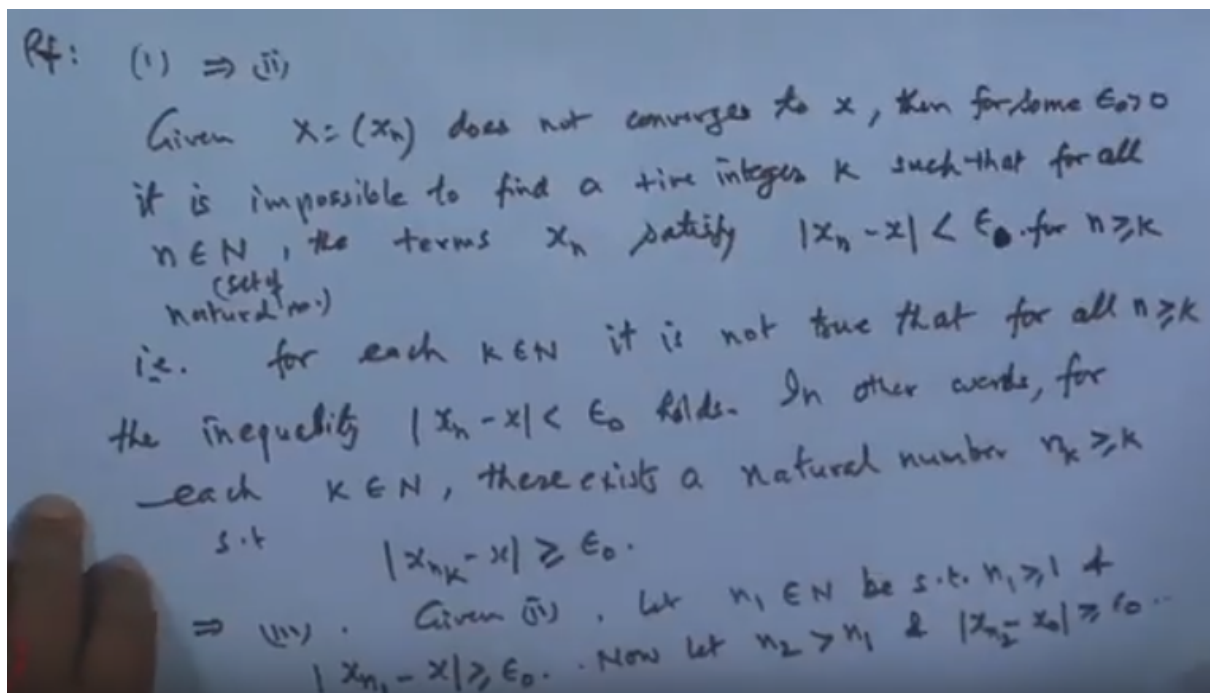 Pf: (i) ⇒ (ii)
Given X = (xₙ) does not converges to x, then for some ε₀>0
it is impossible to find a +ive integer K such that for all
n ∈ N, the terms xₙ satisfy |xₙ - x| < ε₀. for n ≥ K
(set of
natural no.)
i.e. for each K ∈ N it is not true that for all n ≥ K
the inequality |xₙ - x| < ε₀ holds. In other words, for
each K ∈ N, there exists a natural number n_K ≥ K
s.t |x_{n_K} - x| ≥ ε₀.
⇒ (iii). Given (ii), let n₁ ∈ N be s.t. n₁ ≥ 1 &
|x_{n₁} - x| ≥ ε₀. Now let n₂ > n₁ & |x_{n₂} - x₀| ≥ ε₀..